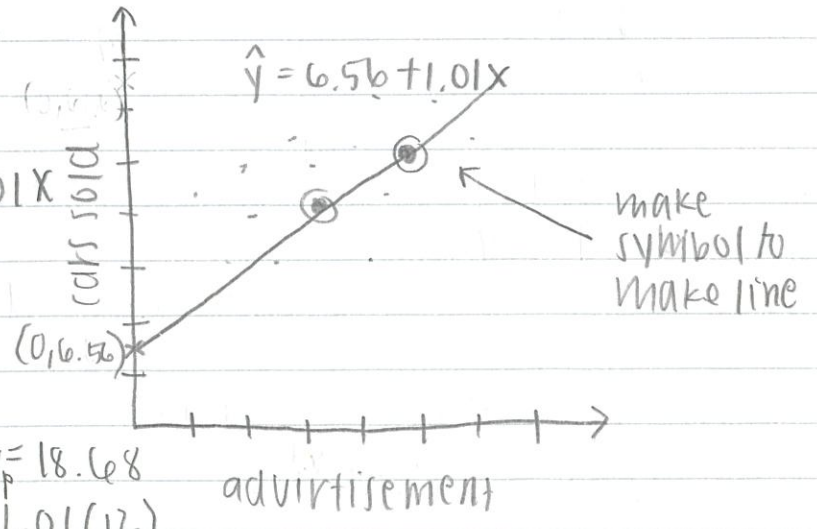 ŷ = 6.56 + 1.01X
01X
cars sold
make
symbol to
make line
(0,6.56)
= 18.68
p
advirtisement
.01(12)